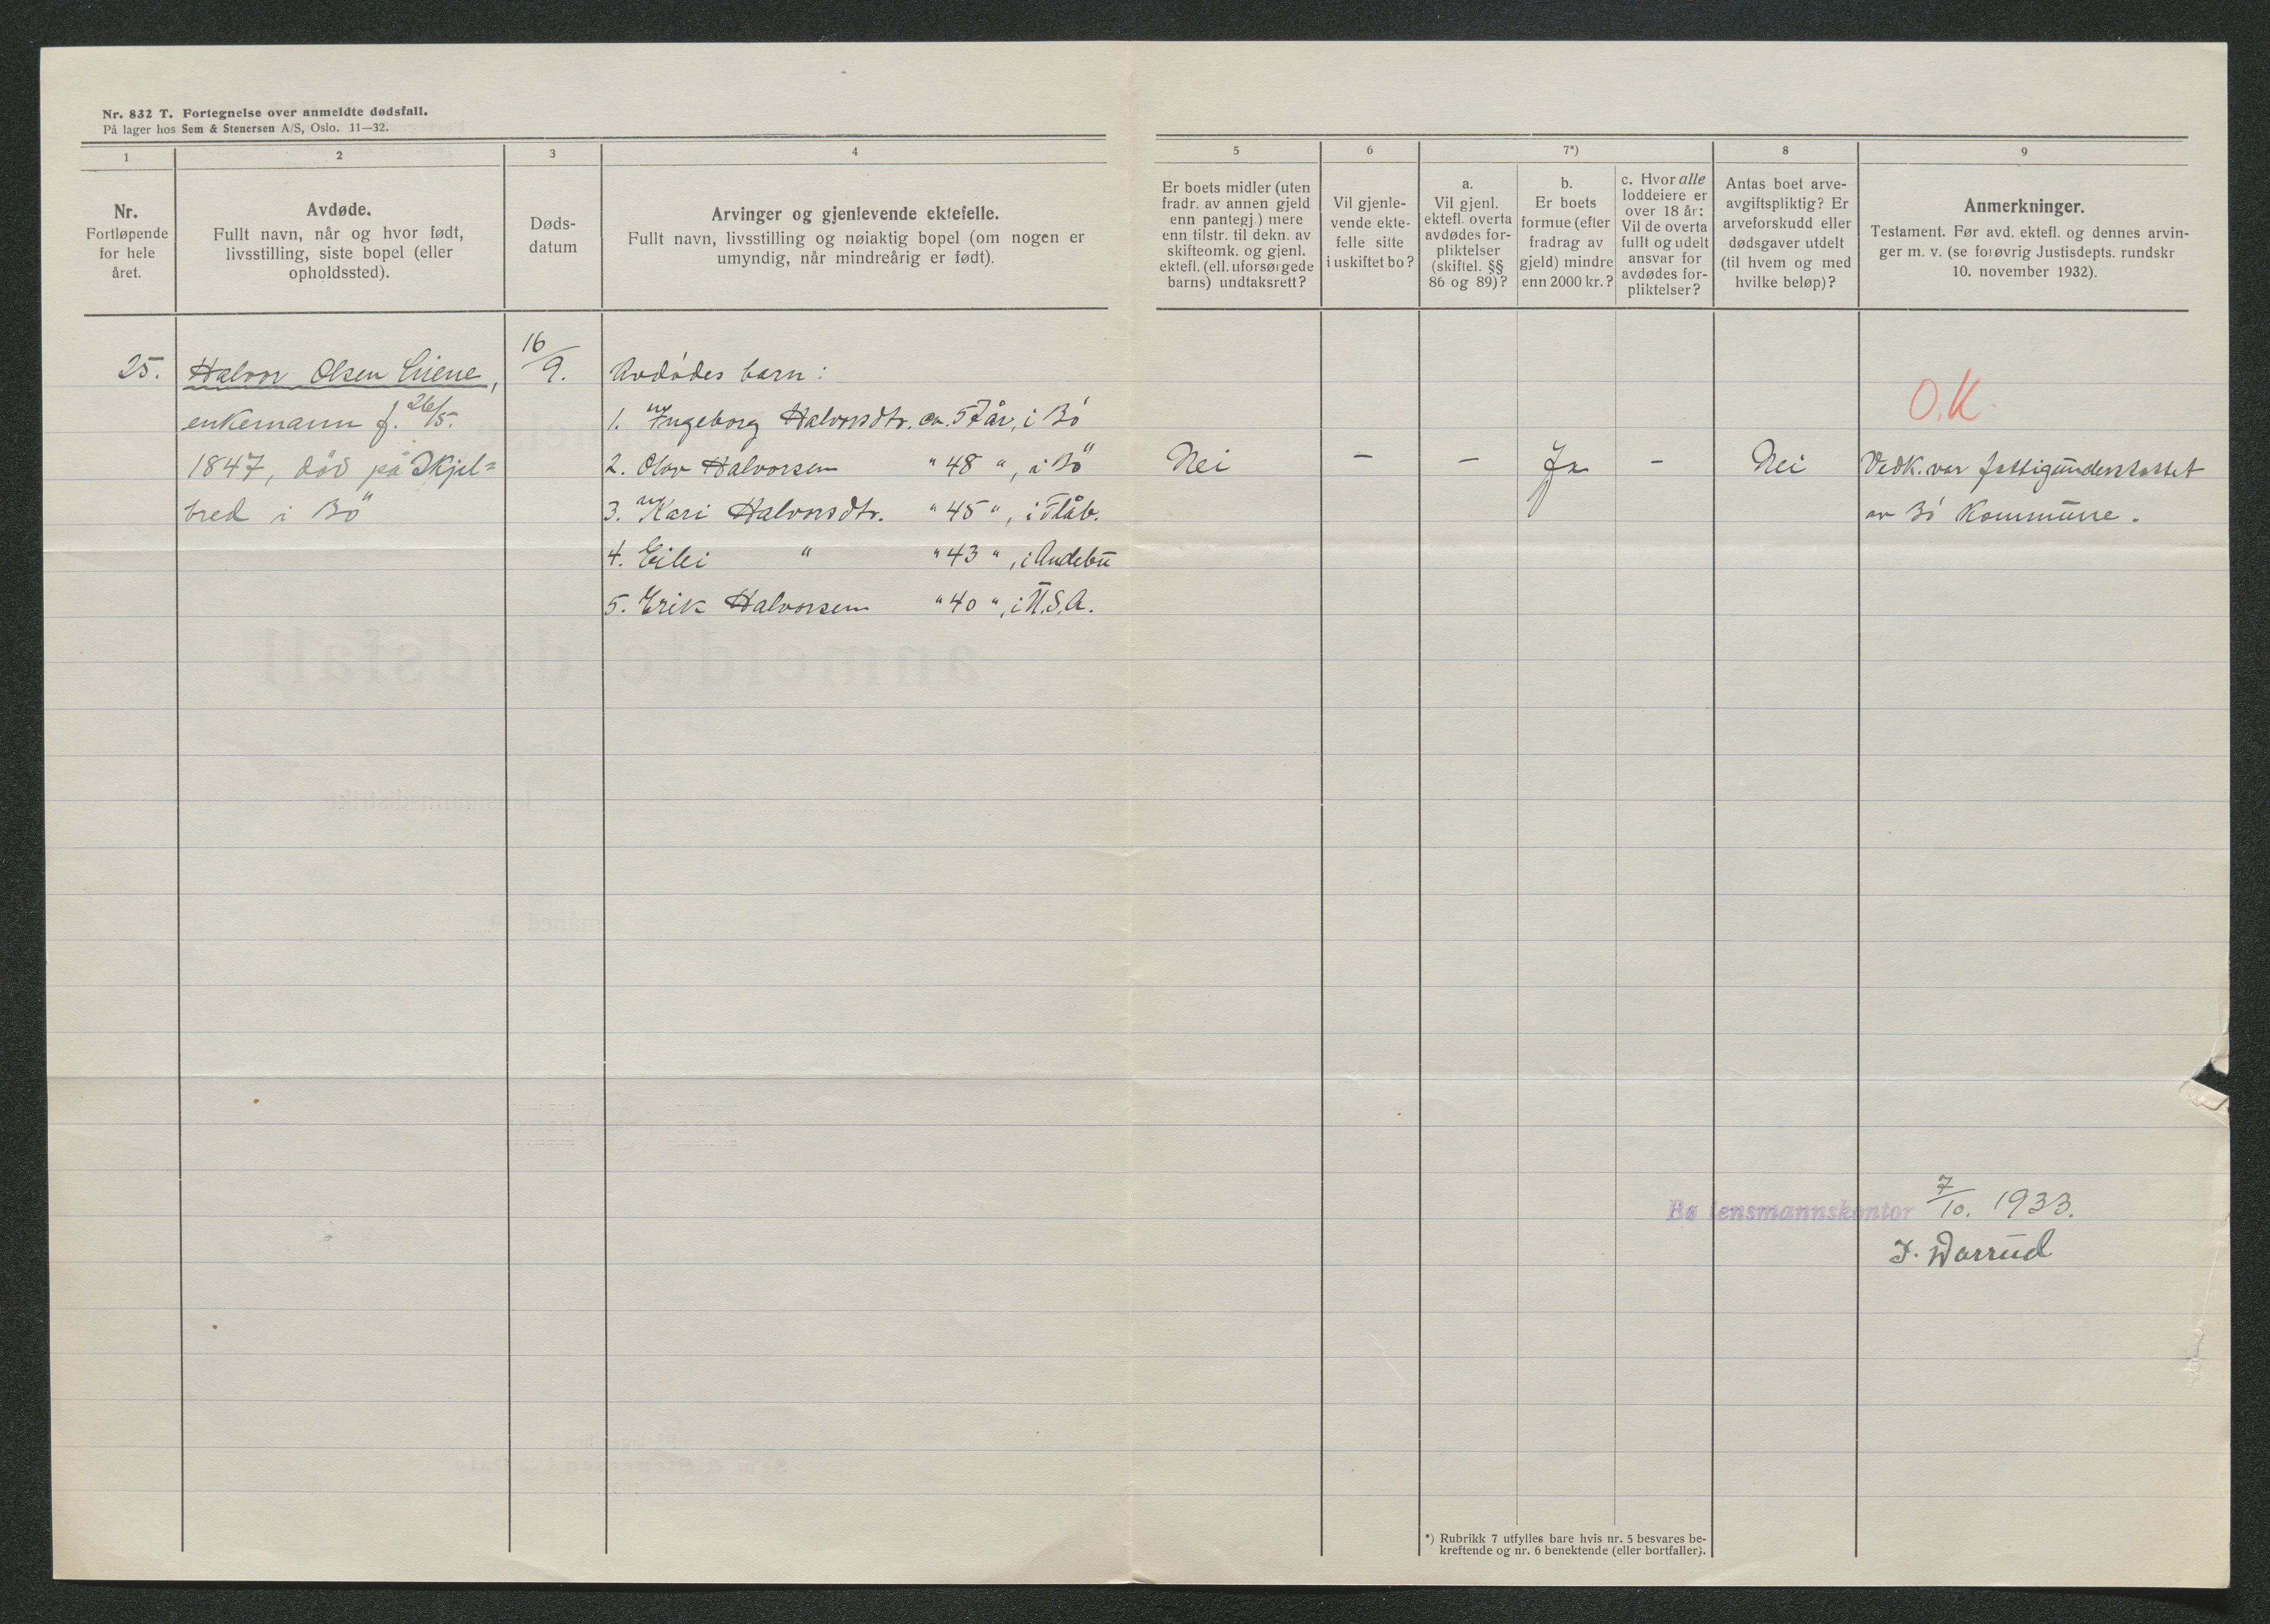 Nr. 832 T. Fortegnelse over anmeldte dødsfall.
På lager hos Sem & Stenersen A/S, Oslo. 11—32.
1
2
3
4
5
6
7*)
8
9
Nr.
Fortløpende
for hele
året.
Avdøde.
Fullt navn, når og hvor født,
livsstilling, siste bopel (eller
opholdssted).
Døds-
datum
Arvinger og gjenlevende ektefelle.
Fullt navn, livsstilling og nøiaktig bopel (om nogen er
umyndig, når mindreårig er født).
Er boets midler (uten
fradr. av annen gjeld
enn pantegj.) mere
enn tilstr. til dekn. av
skifteomk. og gjenl.
ektefl. (ell. uforsørgede
barns) undtaksrett?
Vil gjenle-
vende ekte-
felle sitte
i uskiftet bo?
a.
Vil gjenl.
ektefl. overta
avdødes for-
pliktelser
(skiftel. §§
86 og 89)?
b.
Er boets
formue (efter
fradrag av
gjeld) mindre
enn 2000 kr.?
c. Hvor alle
loddeiere er
over 18 år:
Vil de overta
fullt og udelt
ansvar for
avdødes for-
pliktelser?
Antas boet arve-
avgiftspliktig? Er
arveforskudd eller
dødsgaver utdelt
(til hvem og med
hvilke beløp)?
Anmerkninger.
Testament. Før avd. ektefl. og dennes arvin-
ger m. v. (se forøvrig Justisdepts. rundskr
10. november 1932).
25.
Halvor Olsen
enkemann f. 26/5.
1847, död på Skjel=
bred i Bö
16/9.
Avdødes barn:
1. Ingeborg Halvorsdtr. ca. 57 år, i Bö
2. Olav Halvorsen " 48 ", i Bö
3. Kari Halvorsdtr. " 45 ", i Flåb.
4. Eilei " " 43 ", i Andebu
5. Erik Halvorsen " 40 ", i U.S.A.
Nei
—
—
Ja
—
Nei
O.K.
Vedk. var fattigunderstøttet
av Bö Kommune.
Bø lensmannskontor 7/10. 1933.
Warrud
*) Rubrikk 7 utfylles bare hvis nr. 5 besvares be-
kreftende og nr. 6 benektende (eller bortfaller).